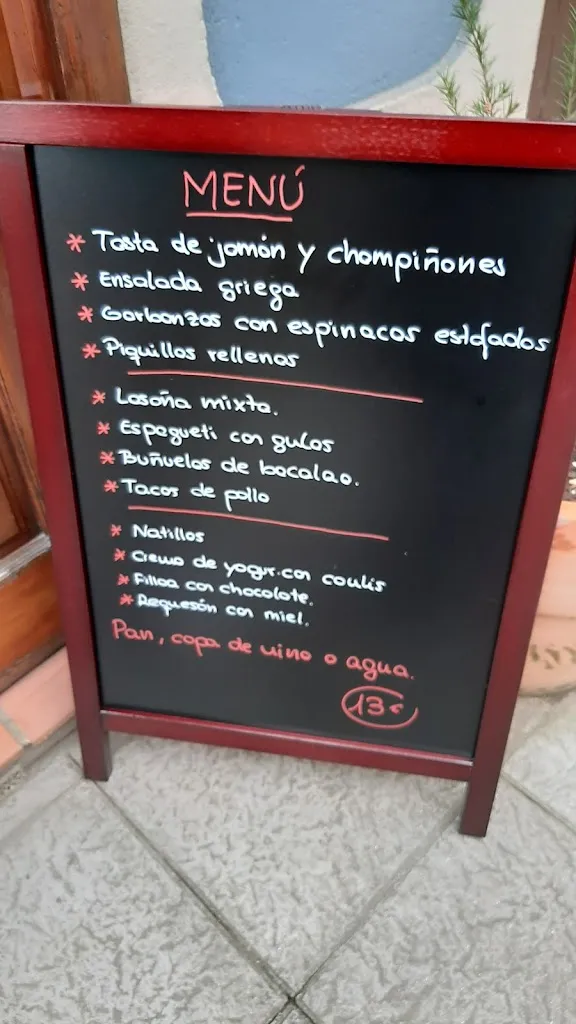 MENÚ
* Tosta de jamón y champiñones
* Ensalada griega
* Garbanzos con espinacas estofados
* Piquillos rellenos
* Lasaña mixta.
* Espagueti con gulas
* Buñuelos de bacalao.
* Tacos de pollo
* Natillas
* Crema de yogur con coulis
* Filloa con chocolate.
* Requesón con miel.
Pan, copa de vino o agua.
13€